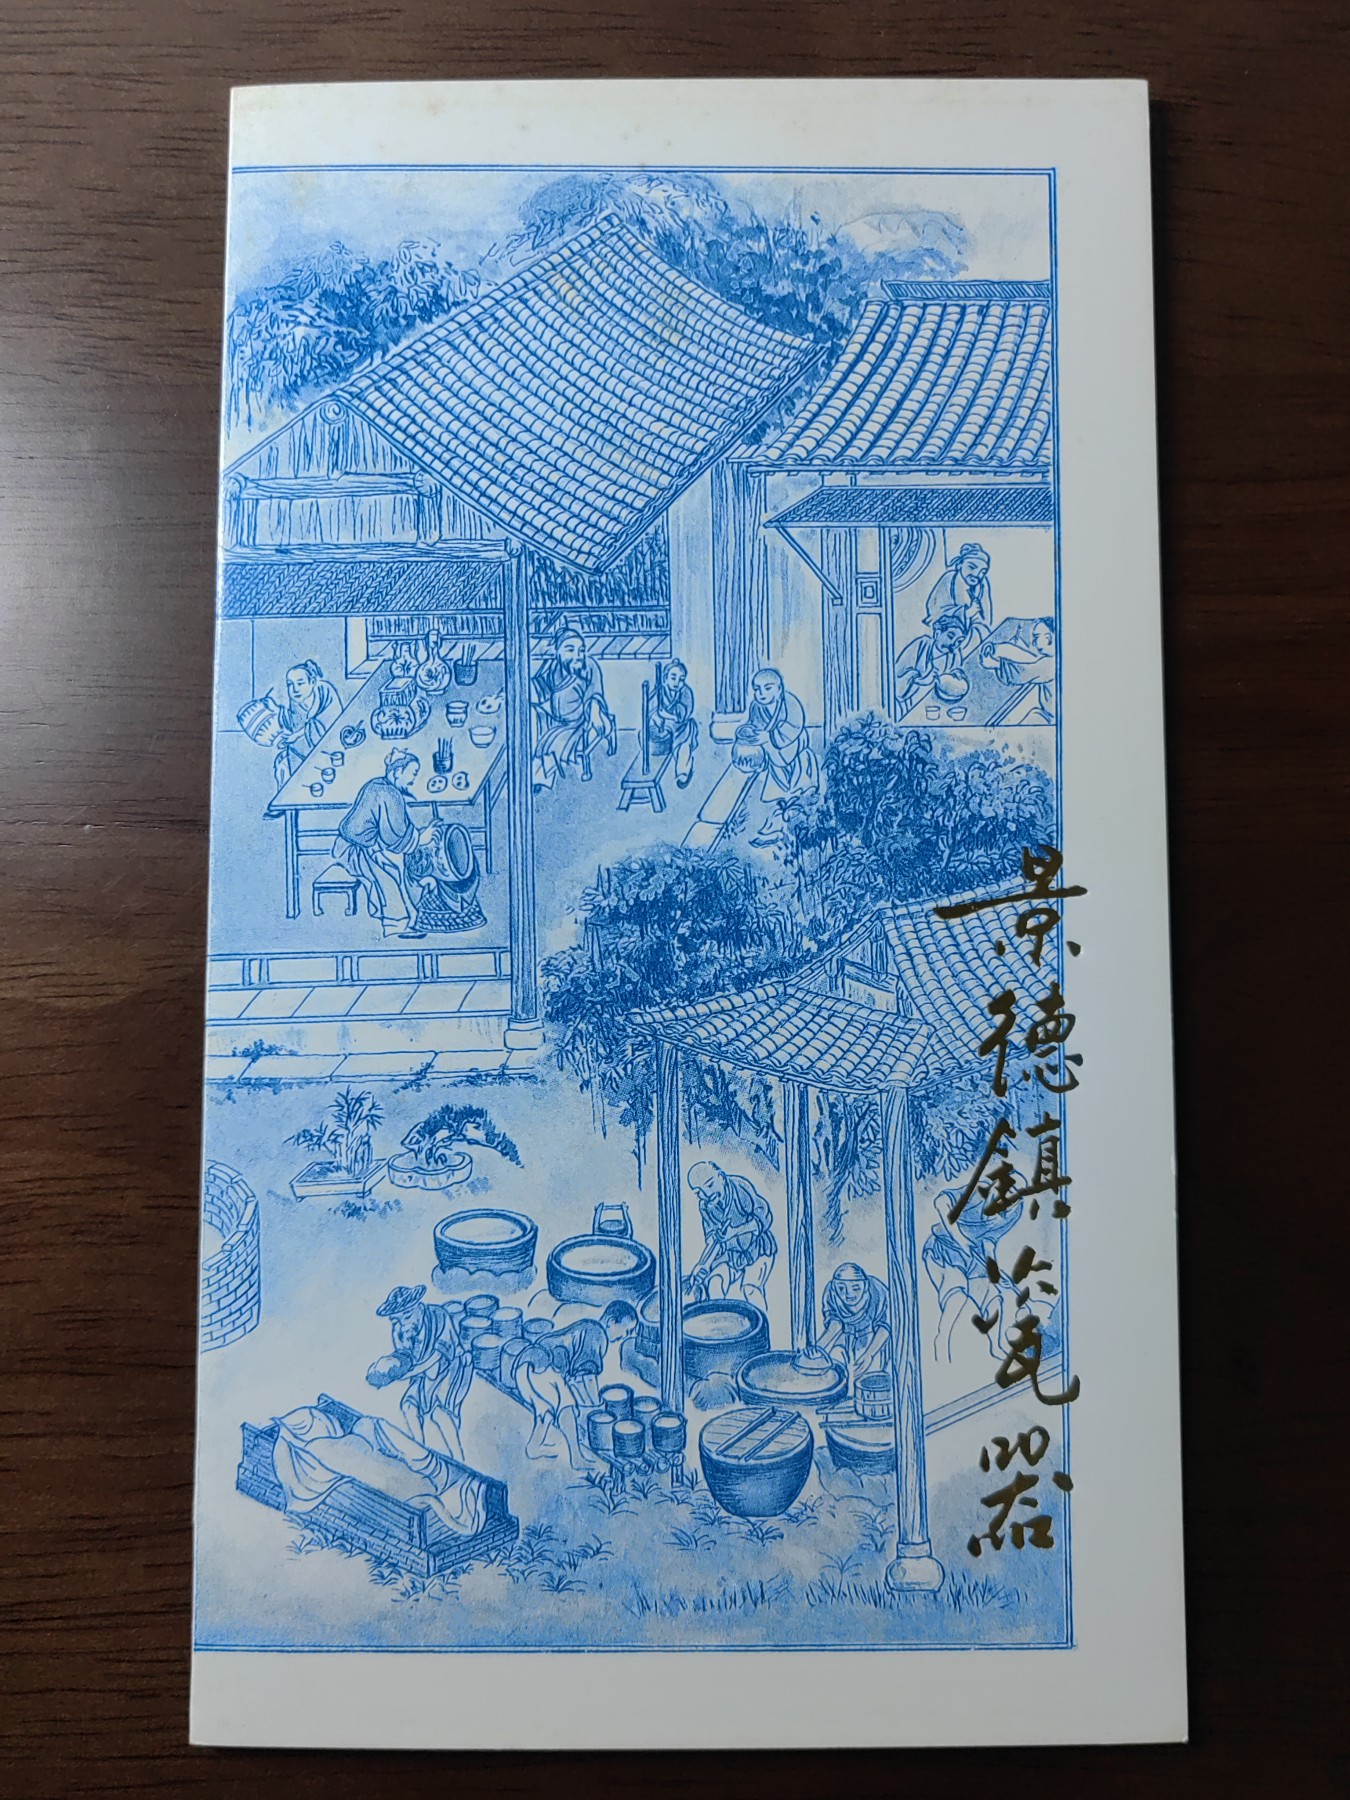 景德鎮瓷器